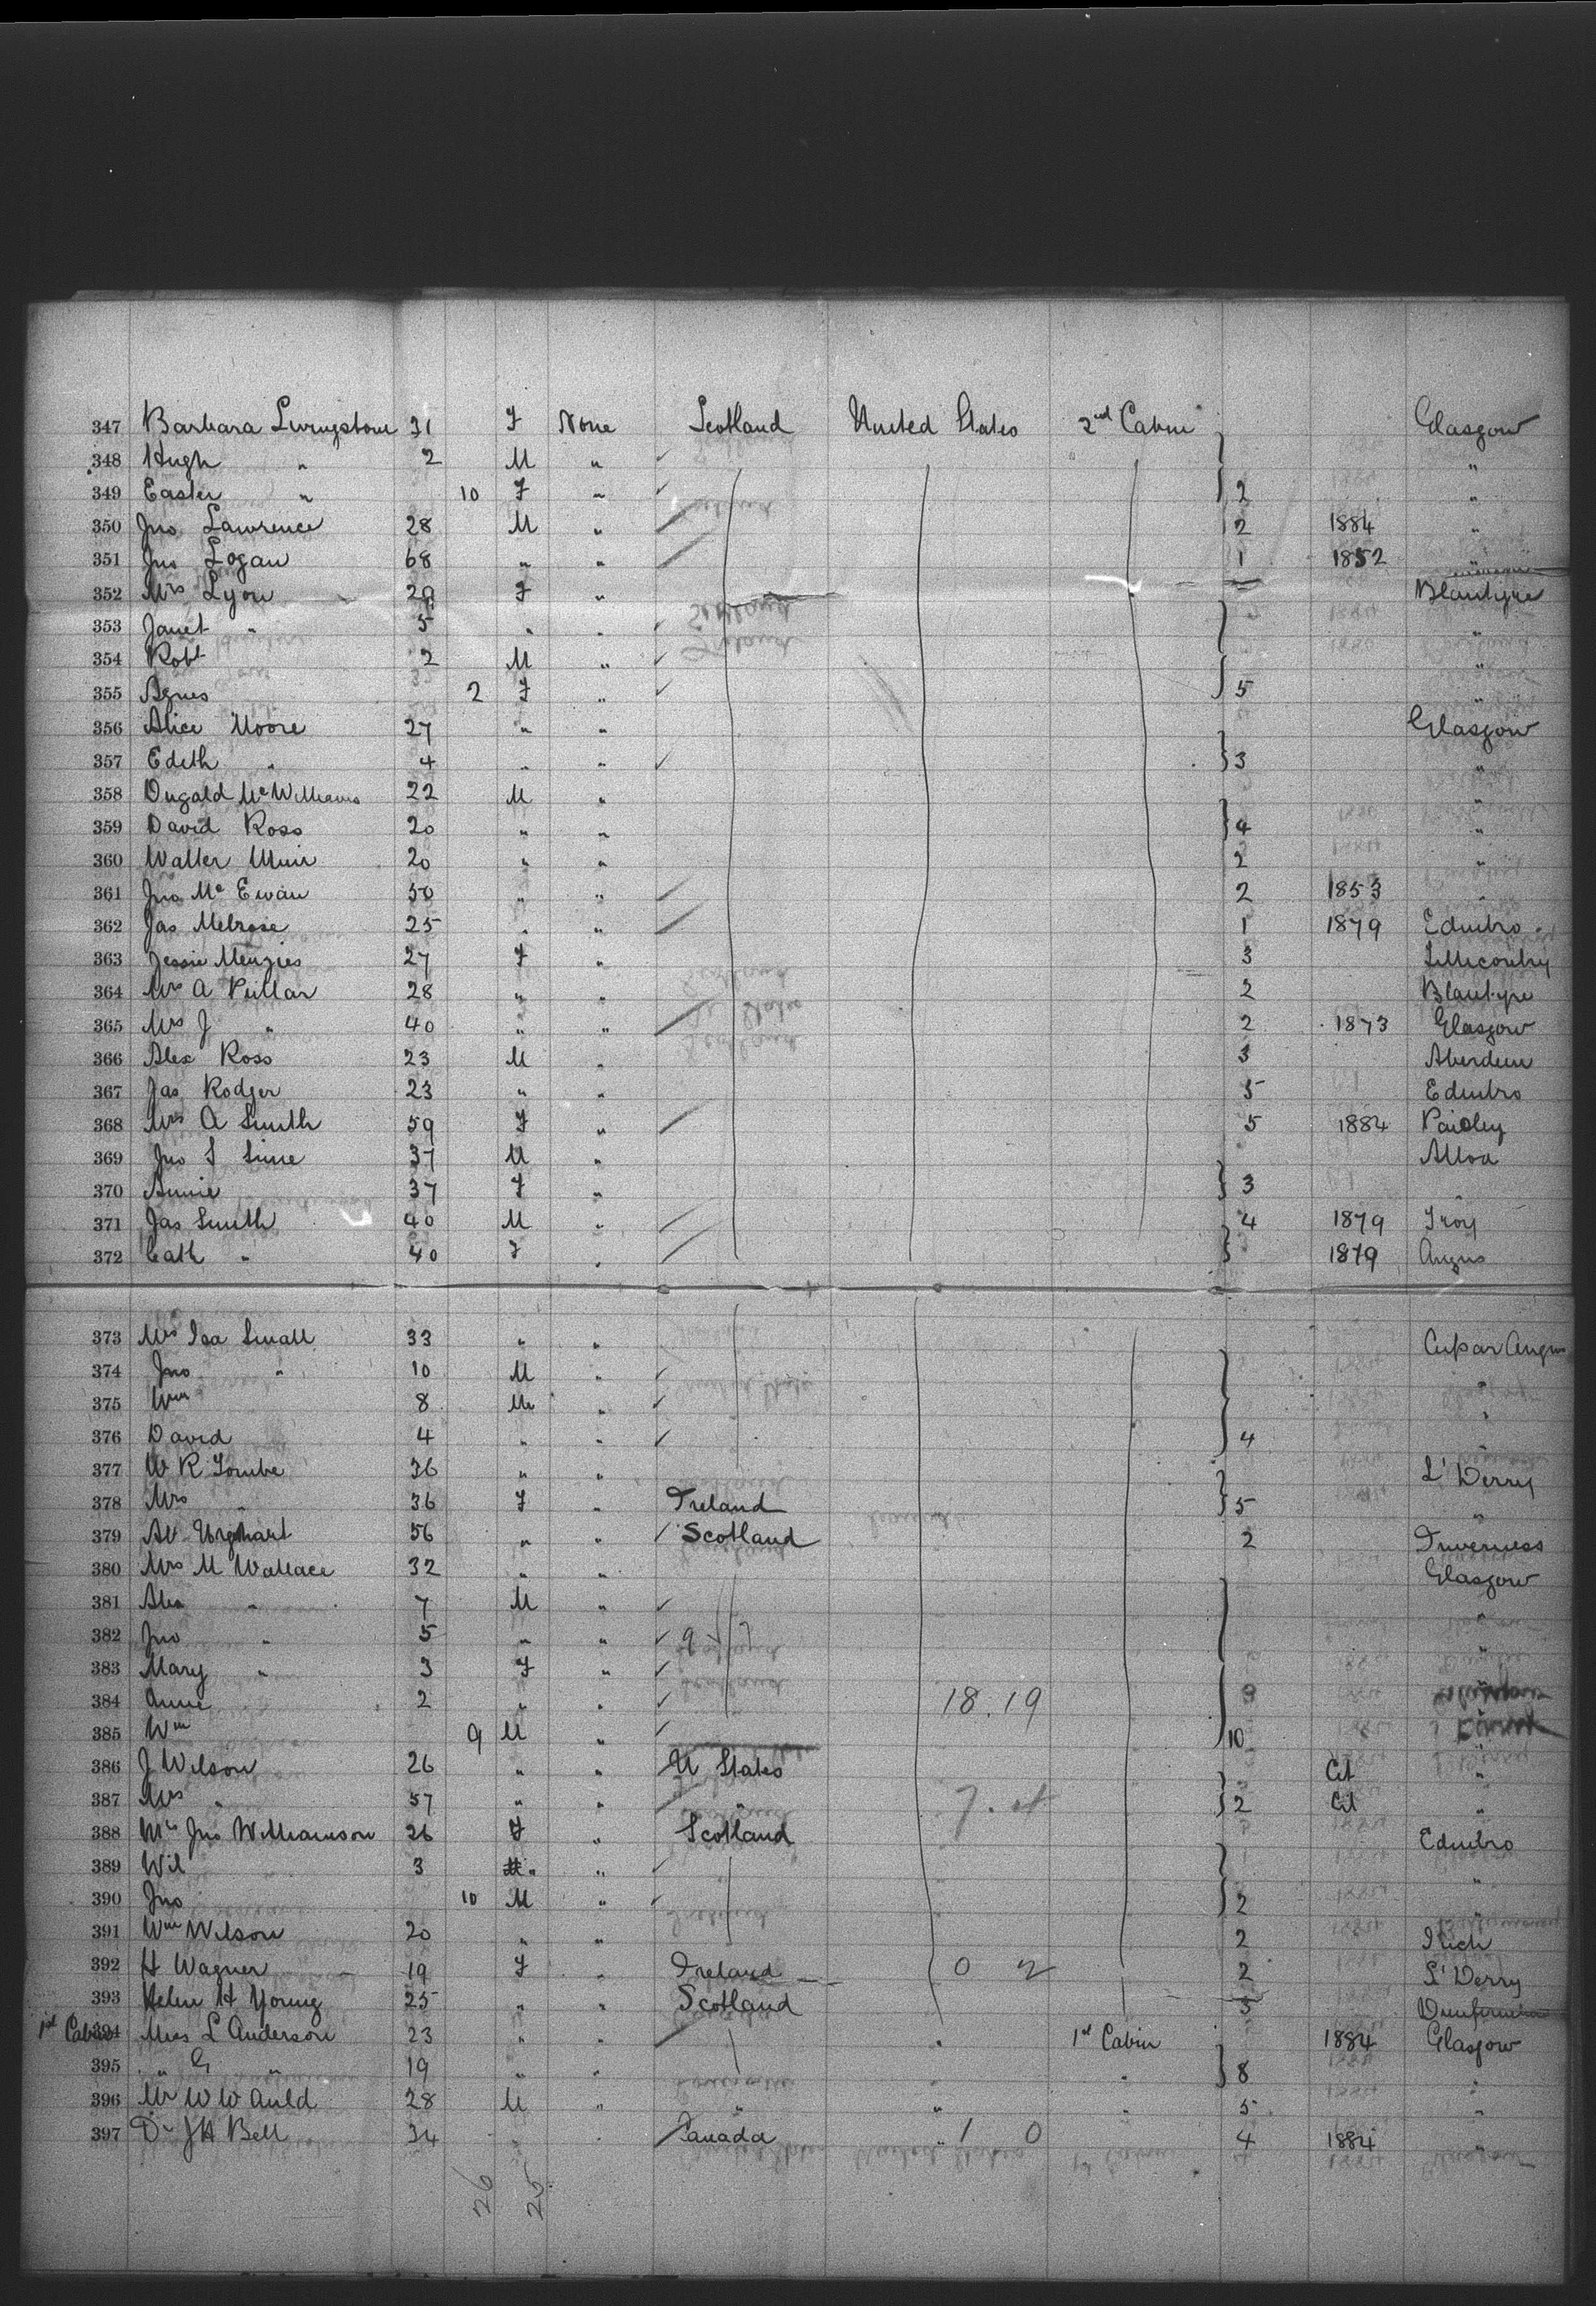 347 Barbara Livingstone 31 F None Scotland United States 2nd Cabin Glasgow
348 Hugh " 2 M " "
349 Easter " 10 F " 2 "
350 Jno Lawrence 28 M " 2 1884 "
351 Jno Logan 68 " " 1 1852 "
352 Mrs Lyon 29 F " Blantyre
353 Janet " 5 " " "
354 Robt 2 M " "
355 Agnes 2 F " 5 "
356 Alice Moore 27 " " Glasgow
357 Edith " 4 " " 3 "
358 Dugald McWilliams 22 M " "
359 David Ross 20 " " 4 "
360 Walter Muir 20 " " 2 "
361 Jno Mc Ewan 50 " " 2 1853 "
362 Jas Melrose 25 " " 1 1879 Edinbro
363 Jessie Menzies 27 F " 3
364 Mrs A Pullar 28 " " 2 Blantyre
365 Mrs J " 40 " " 2 1873 Glasgow
366 Alex Ross 23 M " 3 Aberdeen
367 Jas Rodger 23 " " 5 Edinbro
368 Mrs A Smith 59 F " 5 1884 Paisley
369 Jno S Sime 37 M " Alloa
370 Annie 37 F " 3 "
371 Jas Smith 40 M " 4 1879 Troy
372 Cath " 40 F " 1879 Angus
373 Mrs Isa Small 33 " " Cupar Angus
374 Jno " 10 M " "
375 Wm 8 M " "
376 David 4 " " 4
377 W R Tombe 36 " " L'Derry
378 Mrs " 36 F " Ireland 5 "
379 Urquhart 56 " " Scotland 2 Inverness
380 Mrs M Wallace 32 " " Glasgow
381 Alex " 7 M " "
382 Jno " 5 " " 9 7 "
383 Mary " 3 F "
384 Annie 2 " " 18.19
385 Wm 9 M " 10
386 J Wilson 26 " " U States Cit "
387 Mrs " 57 " " " 2 Cit "
388 Mrs Jno Williamson 26 F " Scotland Edinbro
389 Wil 3 " " "
390 Jno 10 M " 2 "
391 Wm Wilson 20 " " 2
392 H Wagner 19 F " Ireland 0 2 2 L'Derry
393 Helen H Young 25 " " Scotland 3
1st Cabin 394 Miss L Anderson 23 " " " 1st Cabin 1884 Glasgow
395 " G " 19 " " " " 8 "
396 Mr W W Auld 28 M " " " " 5 "
397 Dr J H Bell 34 " " Canada " 1 0 4 1884 "
26 25